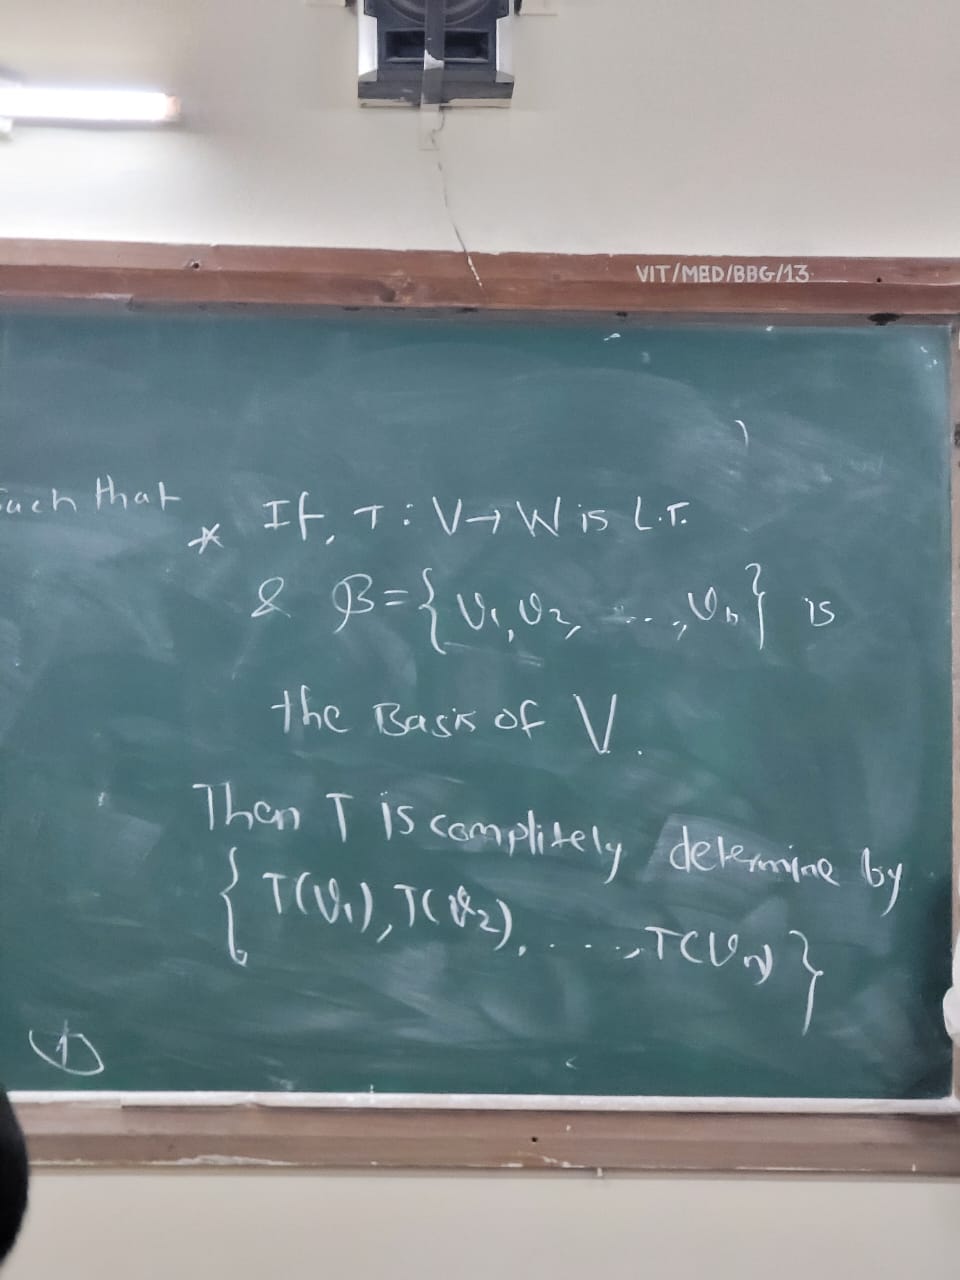 VIT/MED/BBG/13
such that
* If, T : V → W is L.T.
& β = { v₁, v₂, ...., vₙ } is
the Basis of V.
Then T is complitely determine by
{ T(v₁), T(v₂), ....., T(vₙ) }
1